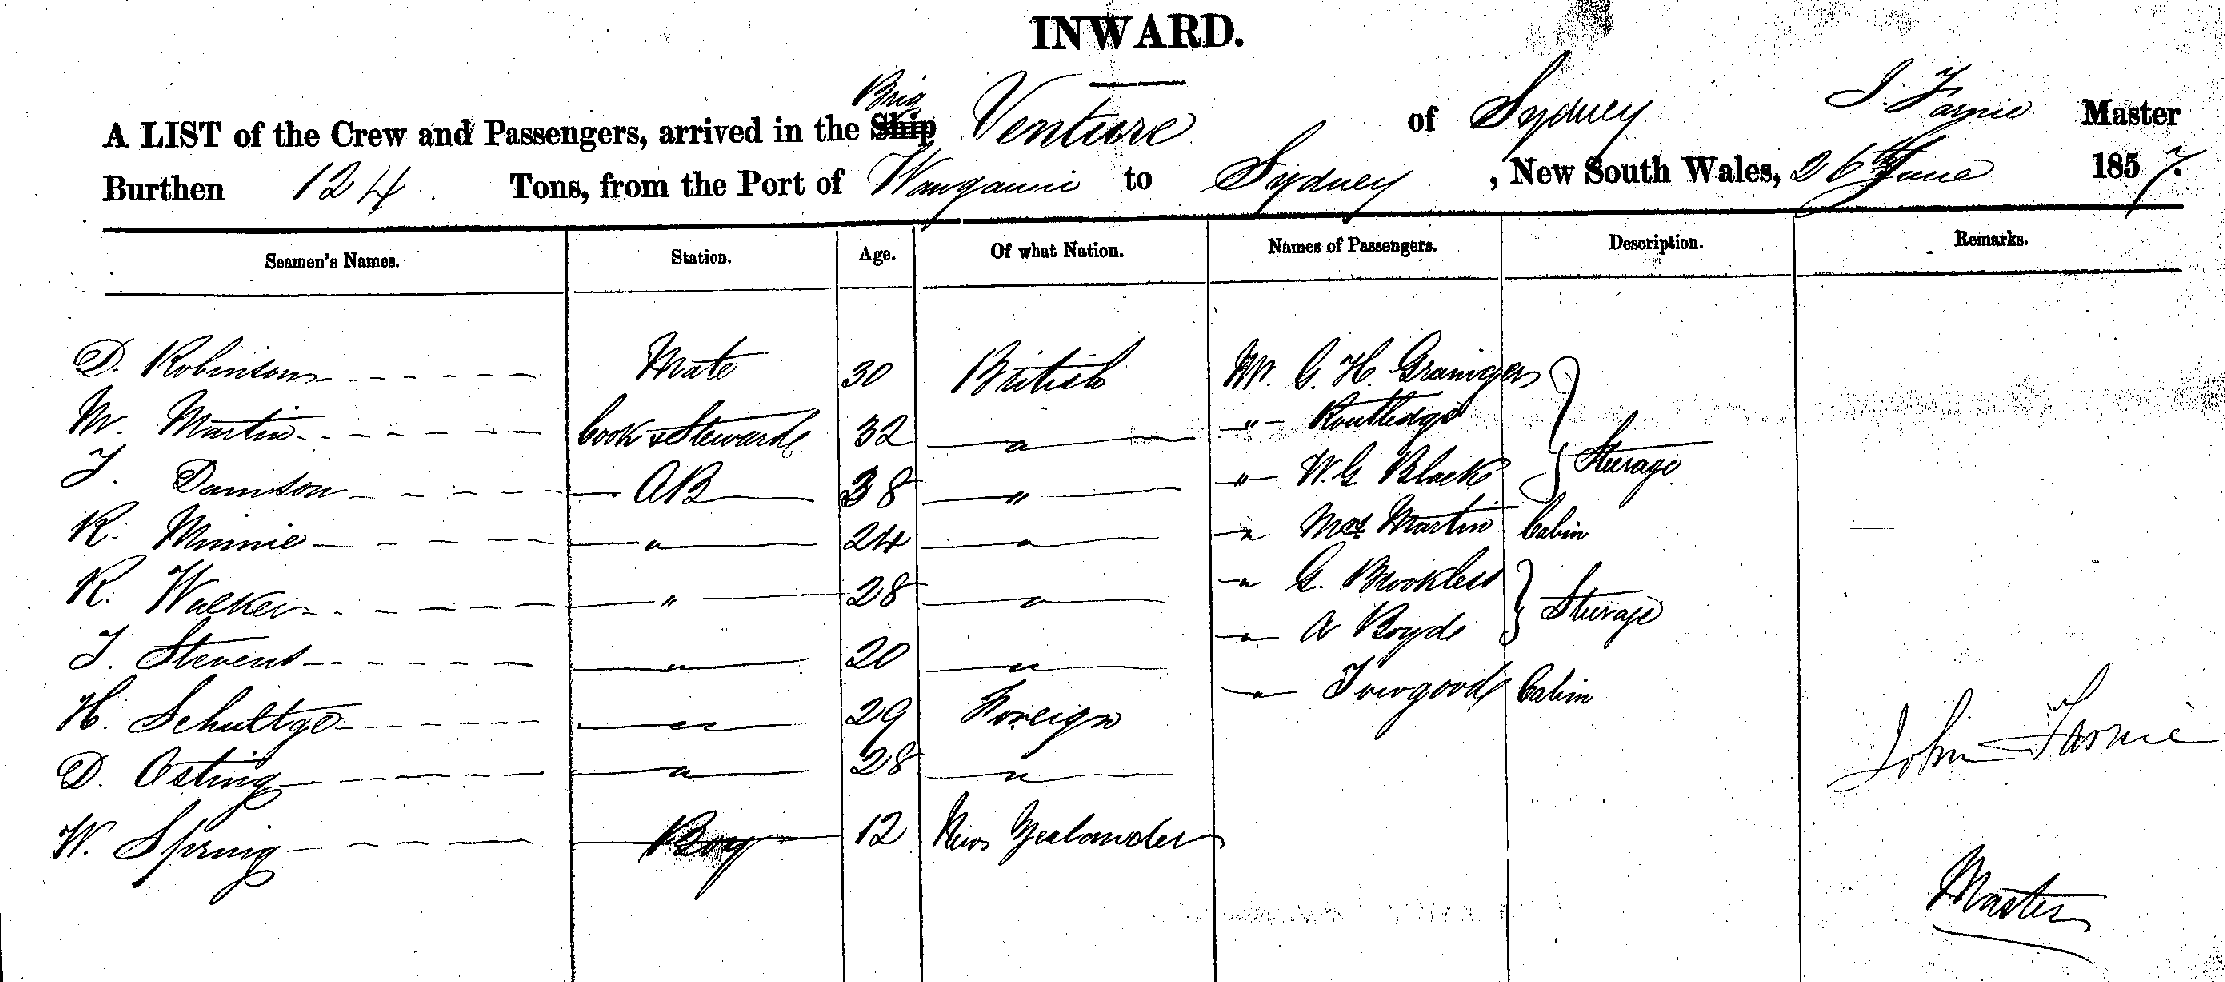 INWARD.
Brig
A LIST of the Crew and Passengers, arrived in the Ship Venture of Sydney J. Farnie Master
Burthen 124 Tons, from the Port of Wanganui to Sydney, New South Wales, 26th June 1857.
Seamen's Names. Station. Age. Of what Nation. Names of Passengers. Description. Remarks.
D. Robinson Mate 30 British Mr. G. H. Grainger
W. Martin Cook & Steward 32 " " Routledge
J. Damson AB 38 " " W. G. Black Steerage
R. Minnie " 24 " " Mrs Martin Cabin
R. Walker " 28 " " G. Brookless
J. Stevens " 20 " " A Boyd Steerage
H. Schultze " 29 Foreign " Towgood Cabin
D. Osting " 28 " John Farnie
W. Spring Boy 12 New Zealander
Master